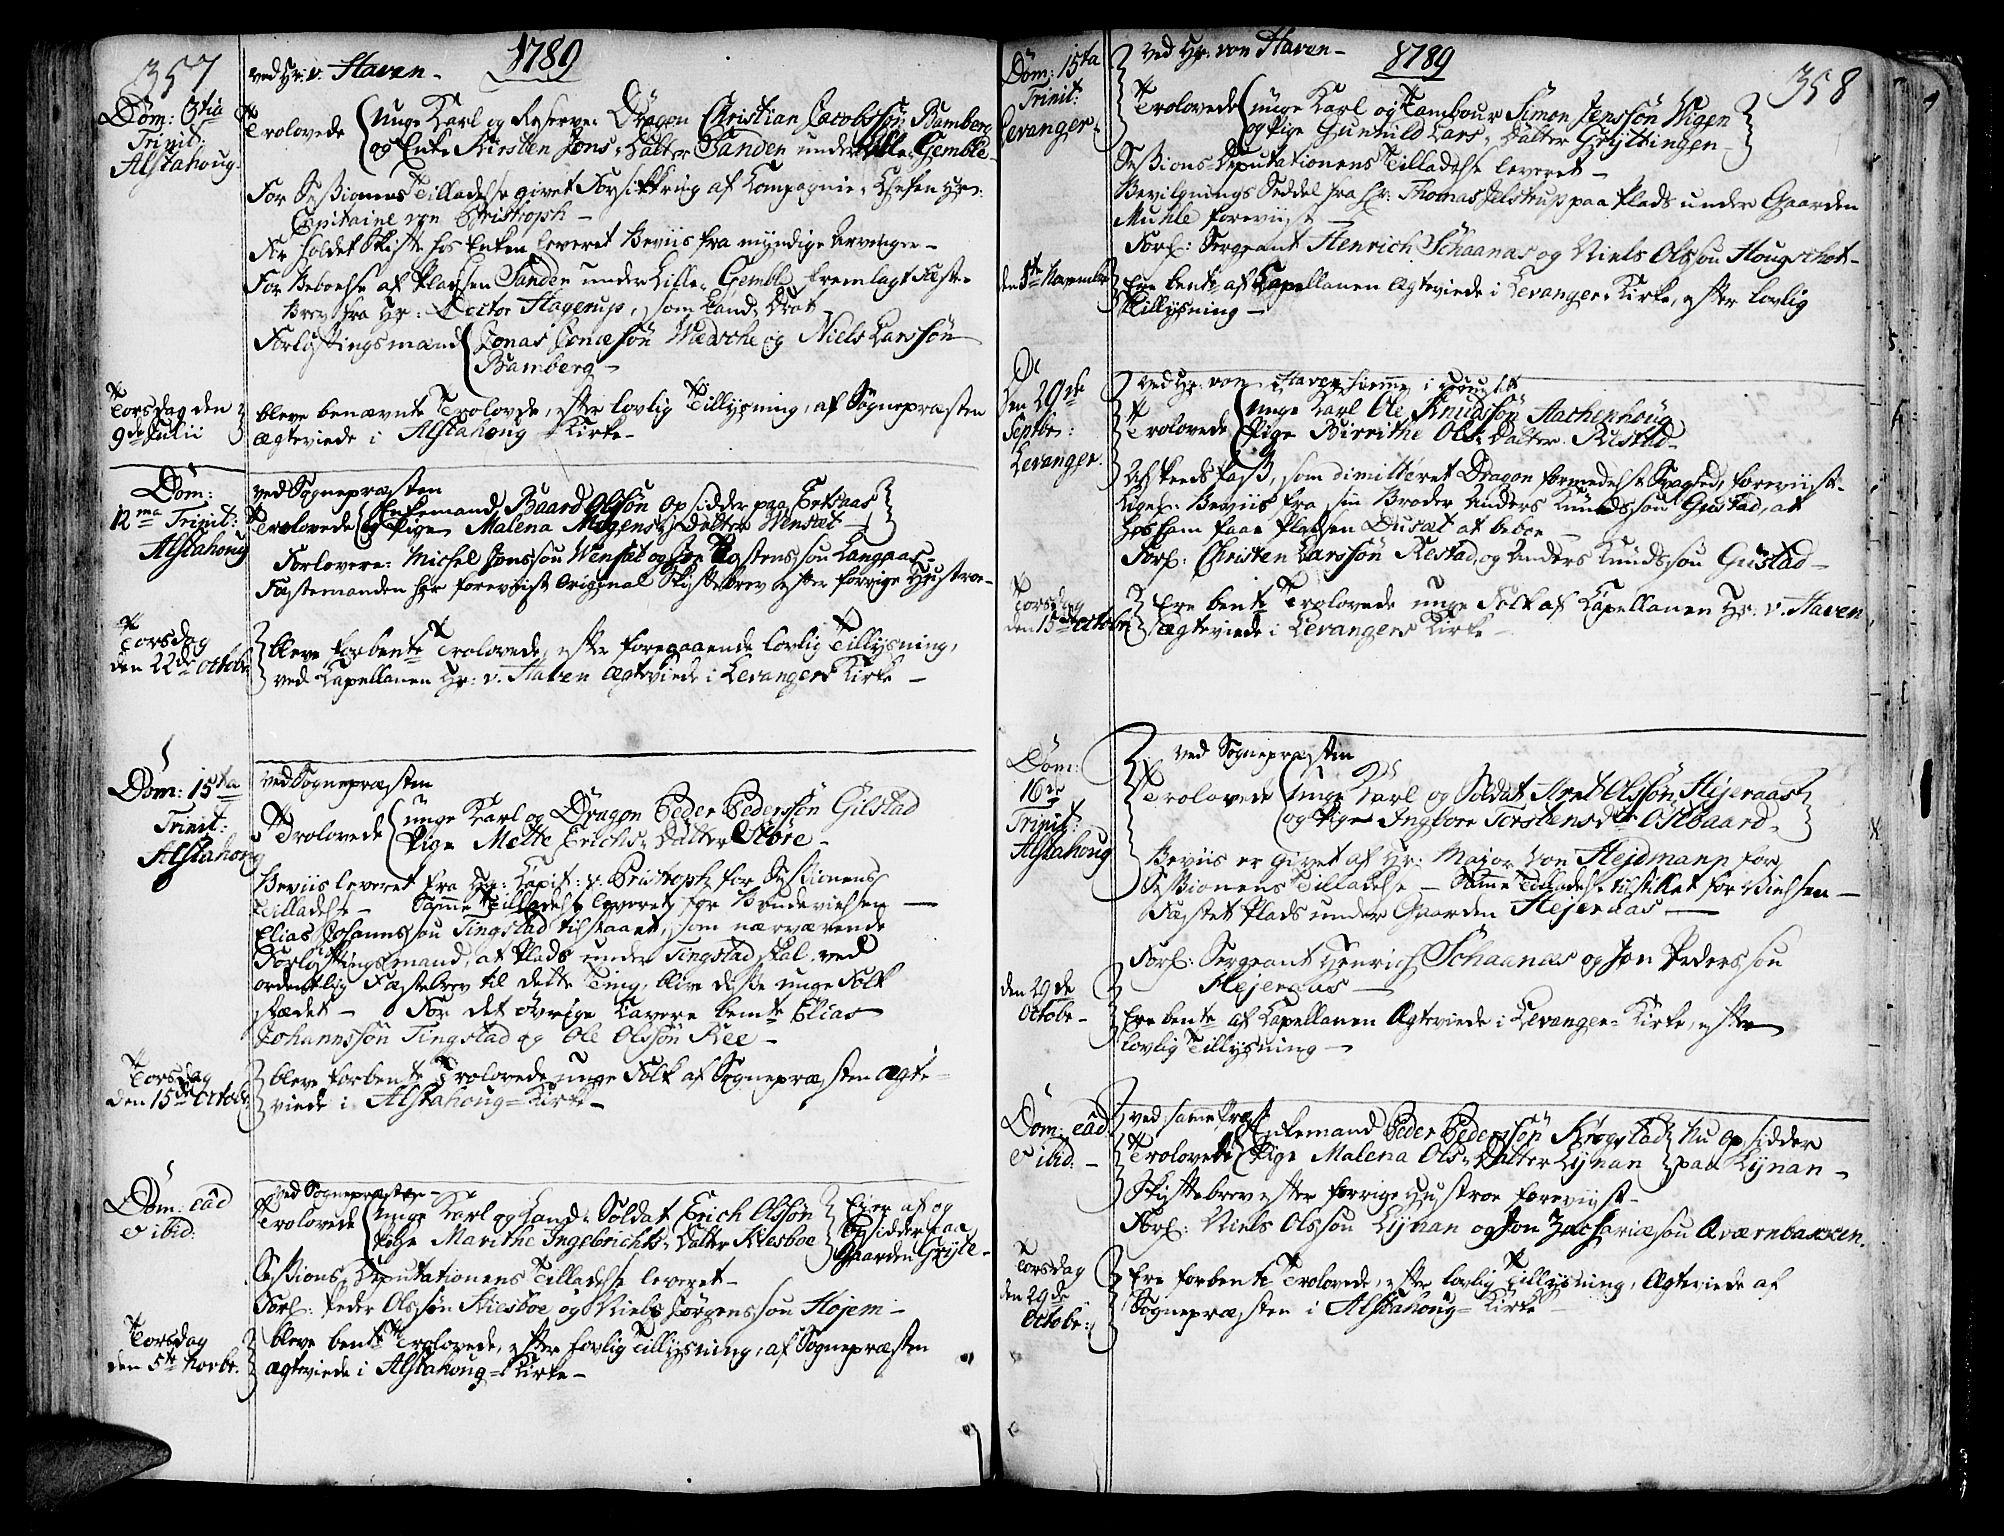 357
1789
ved Hr. v. Haven -
Dom: 6tia
Trinit:
Alstahoug
Trolovede
unge Karl og Reserve Dragon Christian Jacobssøn Bamberg
og Enke Kirsten Jons Datter Sanden under Lille Gemble
For Seßionens Tilladelse givet Forsikkring af Compagnie Chefen Hr:
Capitaine von Pristroph -
For holdet Skifte hos Enken leveret Beviis fra myndige Arvinger -
For Beboelse af Pladsen Sanden under Lille Gemble fremlagt Fæste
Brev fra Hr: Doctor Hagerup, som Land Drot
Forløftingsmænd Jonas Jonæsøn Wædsche og Niels Larssøn
Bamberg -
Torsdag den
9de Julii
bleve benævnte Trolovede, efter lovlig Tillysning, af Sognepræsten
Ægteviede i Alstahoug Kirke -
Dom:
12ma Trinit:
Alstahoug
ved Sognepræsten
Trolovede
Enkemand Baard Olssøn Opsidder paa Eeksaas
og Pige Malena Mogens Datter Wensæt
Forlovere: Michel Jonssøn Wensæt og Joe Tostenssøn Langaas
Fæstemanden har foreviist Original Skiftebrev efter forrige Hustroe -
Torsdag
den 22de Octobr
bleve forbente Trolovede, efter foregaaende lovlig Tillysning,
ved Capellanen Hr: v. Haven Ægteviede i Levangers Kirke -
Dom: 15ta
Trinit:
Alstahoug
ved Sognepræsten
Trolovede
unge Karl og Dragon Peder Pederssøn Gilstad
Pige Mette Erichs Datter Støre -
Beviis leveret fra Hr: Capit: v. Pristroph for Seßionens
Tilladelse - Samme Tilladelse leveret for Brudevielsen -
Elias Johannssøn Tingstad tilstaaet, som nærværende
Forløftingsmand, at Plads under Tingstad skal ved
ordentlig Fæstebrev til dette Ting, blive disse unge Folk
stædet - For det øvrige Cavere bemte Elias
Johannssøn Tingstad og Ole Olssøn Ree -
Torsdag
den 15de Octobr
bleve forbente Trolovede unge Folk af Sognepræsten Ægte=
viede i Alstahoug= Kirke -
Dom: eâd
& ibid:
ved Sognepræsten -
Trolovede
unge Karl og Land Soldat Erich Olssøn
Pige Marithe Ingebrichts Datter Stesboe
Eier af og
Opsidder paa
Gaarden Gryte -
Seßions Deputationens Tilladelse leveret -
Forl: Peder Olssøn Stiesboe og Niels Jørgenssøn Hojem -
Torsdag
den 5te Novbr:
bleve bente Trolovede, efter lovlig Tillysning, af Sognepræsten
Ægteviede i Alstahoug= Kirke -
358
1789
Dom: 15ta
Trinit:
Levanger
ved Hr. von Haven -
Trolovede
unge Karl og Tambour Simon Jenssøn Wigen
og Pige Gunnild Lars Datter Gryttingen -
Seßions Deputationens Tilladelse leveret -
Bevilgnings Seddel fra Hr: Thomas Jelstrup paa Plads under Gaarden
Muhle foreviist -
Forl: Sergeant Henrich Schaanæs og Niels Olssøn Hougschot -
den 5te November
Ere bente af Capellanen Ægteviede i Levanger Kirke, efter lovlig
Tillysning -
Den 29de
Septbr:
Levanger
ved Hr. von Haven hiemme i Huuset
Trolovede
unge Karl Ole Knudssøn Aachenhoug
Pige Birrithe Ols Datter Restad -
Afskeeds Paß, som dimitteret Dragon formedelst Svaghed, foreviist -
Ligel: Beviis fra sin Broder Anders Knudssøn Gustad, at
Pladsen Dusæt at beboe -
Forl: Christen Larssøn Restad, og Anders Knudssøn Gustad -
Torsdag
den 15de Octobr
Ere bente Trolovede unge Folk af Capellanen Hr. v. Haven
Ægteviede i Levangers Kirke -
Dom:
16de
Trinit:
Alstahoug
ved Sognepræsten
Trolovede
unge Karl og Soldat Arnt Olssøn Hejeraas
og Pige Ingbore Torstensdtr Østbaard -
Beviis er givet af Hr: Major von Hejdmann for
Seßionens Tilladelse - Samme Tilladelse tilstillet for Vielsen -
Fæstet Plads under Gaarden Hejeraas -
Forl: Sergeant Henrich Schaanæs og Jon Pederssøn
Hejeraas -
den 29de
Octobr -
Ere bente af Capellanen Ægteviede i Levanger= Kirke, efter
lovlig Tillysning -
Dom: eâd
& ibid: -
ved samme Præst
Trolovede
Enkemand Peder Pederssøn Krogstad nu Opsidder
Pige Malena Ols Datter Lynan paa Lynan -
Skiftebrev efter forrige Hustroe foreviist -
Forl: Niels Olssøn Lynan og Jon Zachariæsøn Aværnbacken.
Torsdag
den 29de
Octobr:
Ere forbente Trolovede, efter lovlig Tillysning, Ægteviede af
Sognepræsten i Alstahoug= Kirke